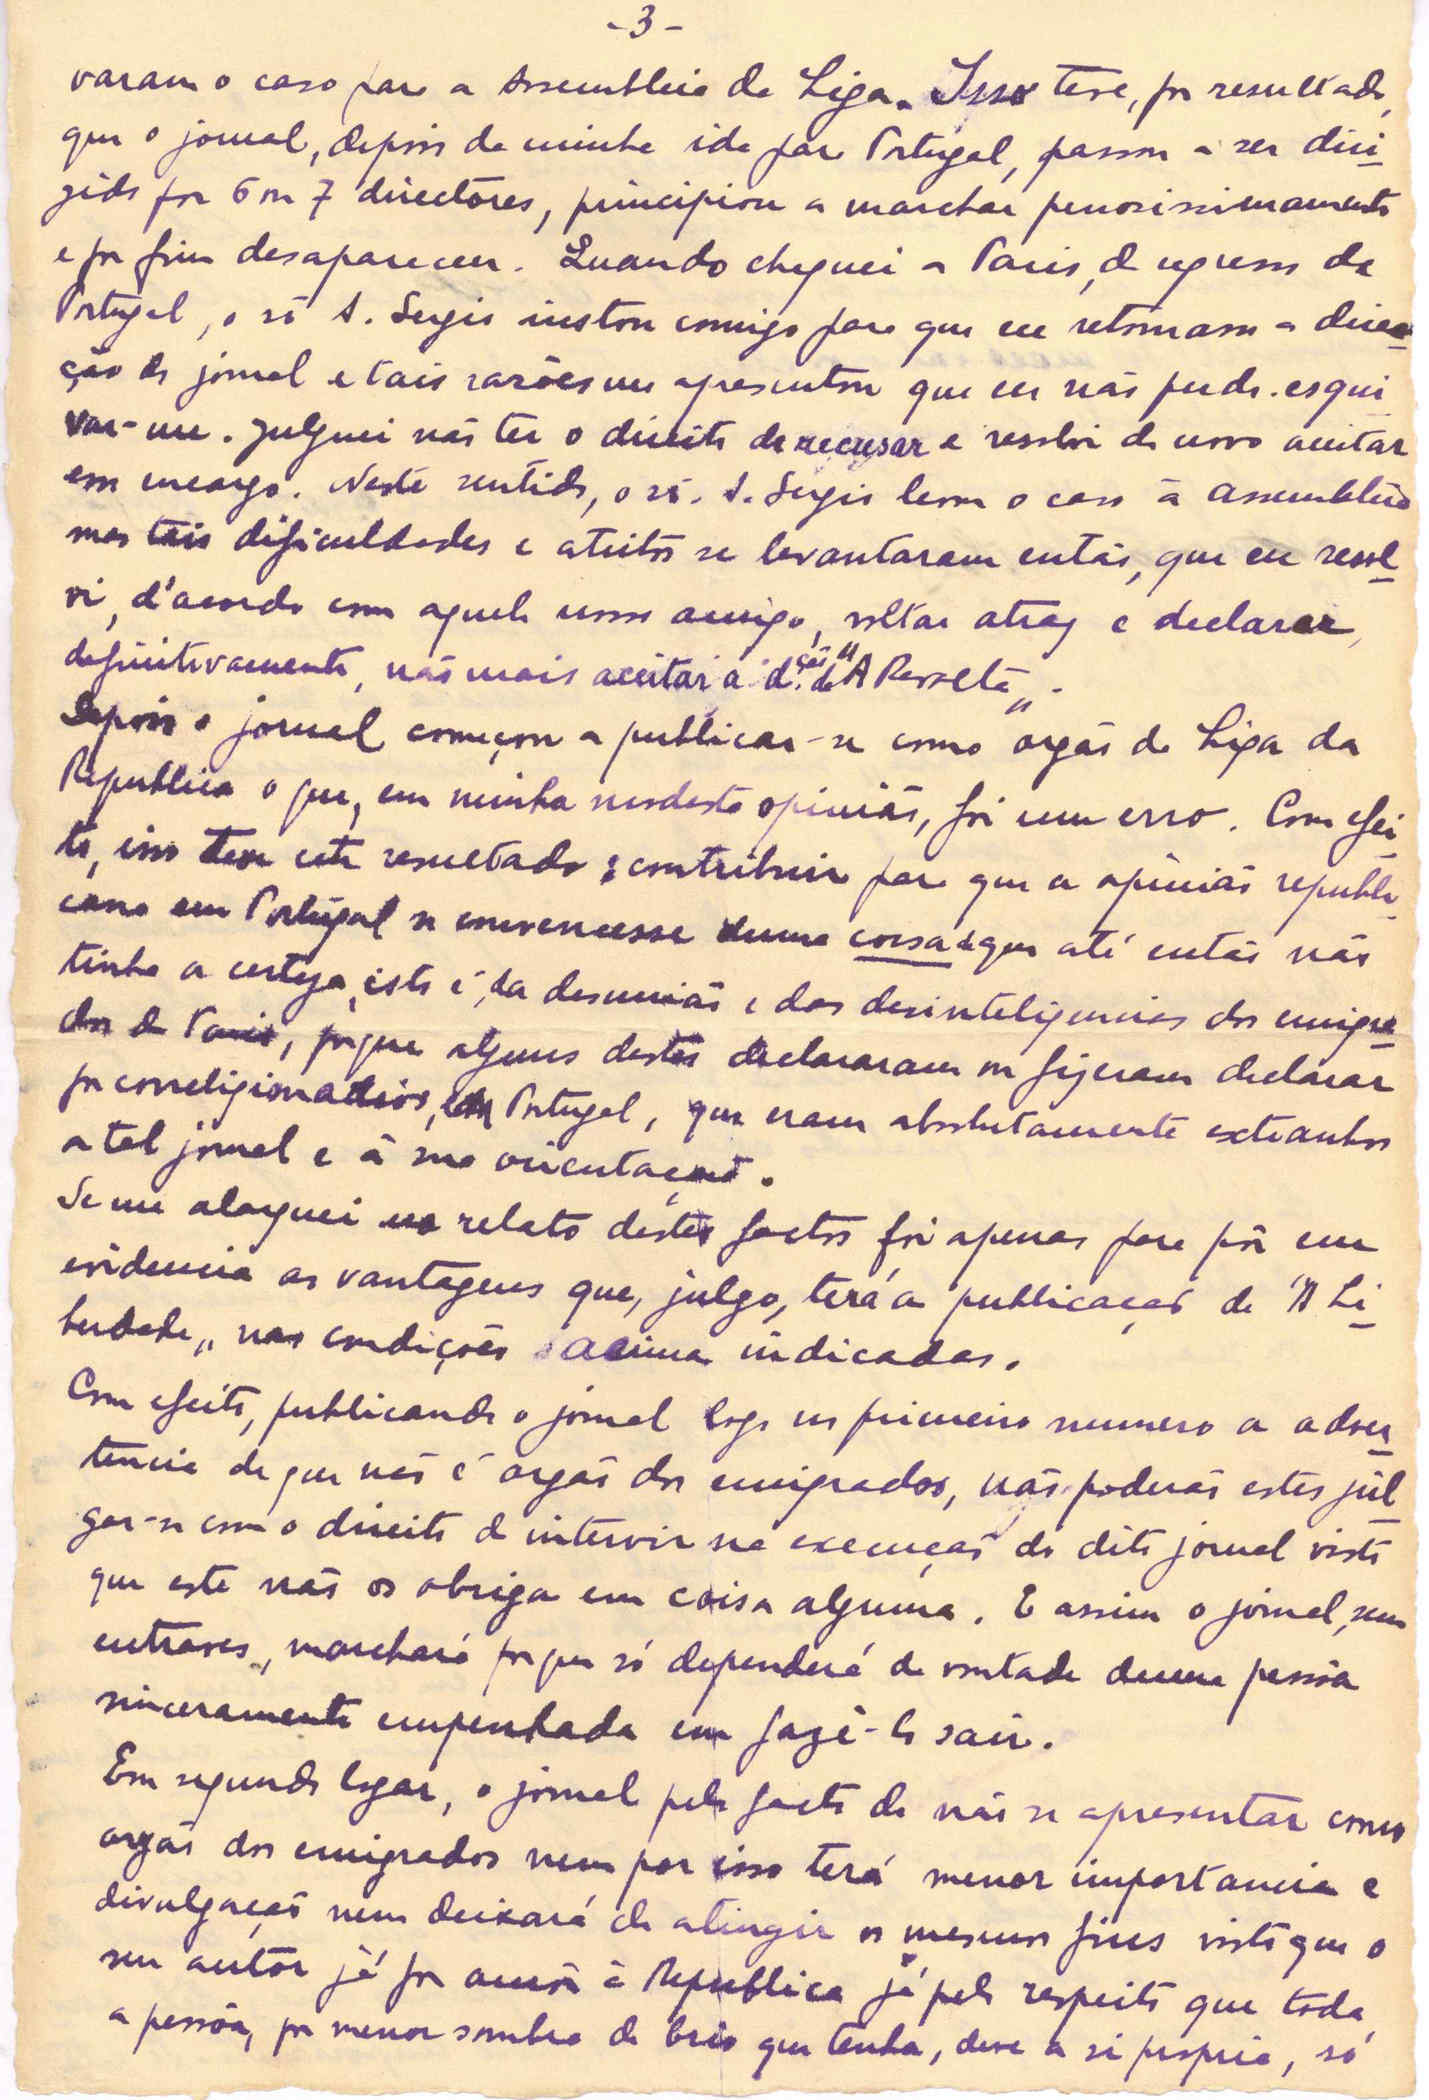 -3-
varam o caso para a Assembleia da Liga. Isso teve, por resultado,
que o jornal, depois da minha ida para Portugal, passou a ser diri-
gido por 6 ou 7 directôres, principiou a marchar penosissimamente
e por fim desapareceu. Quando cheguei a Paris, de regresso de
Portugal, o sr A. Sergio instou comigo para que eu retomasse a direc-
ção do jornal e tais razões me apresentou que eu não pude esqui
var-me. Julguei não ter o direito de recusar e resolvi de novo aceitar
esse encargo. Neste sentido, o sr. A. Sergio levou o caso à assembleia
mas tais dificuldades e atritos se levantaram então, que eu resol-
vi, d'acordo com aquele nosso amigo, voltar atraz e declarar,
definitivamente, não mais aceitar a d.ção de "A Revolta".
Depois o jornal começou a publicar-se como orgão da Liga da
Republica o que, em minha modesta opinião, foi um erro. Com efei
to, isso teve este resultado: contribuir para que a opinião republi-
cana em Portugal se convencesse duma coisa de que até então não
tinha a certeza, isto é, da desunião e das desinteligencias dos emigra-
dos de Paris, porque alguns destes declararam ou fizeram declarar
por correligionarios, em Portugal, que eram absolutamente extranhos
a tal jornal e à sua orientação.
Se me alarguei no relato destes factos foi apenas para pôr em
evidencia as vantagens que, julgo, terá a publicação de "A Li-
berdade" nas condições acima indicadas.
Com efeito, publicando o jornal logo no primeiro numero a adver-
tencia de que não é orgão dos emigrados, não poderão estes jul-
gar-se com o direito de intervir na execução do dito jornal visto
que este não os obriga em coisa alguma. E assim o jornal, sem
entraves, marchará porque só dependerá da vontade duma pessôa
sinceramente empenhada em fazê-lo sair.
Em segundo logar, o jornal pelo facto de não se apresentar como
orgão dos emigrados nem por isso terá menor importancia e
divulgação nem deixará de atingir os mesmos fins visto que o
seu autôr já por amôr à Republica já pelo respeito que toda
a pessôa, por menor sombra de brio que tenha, deve a si propria, só